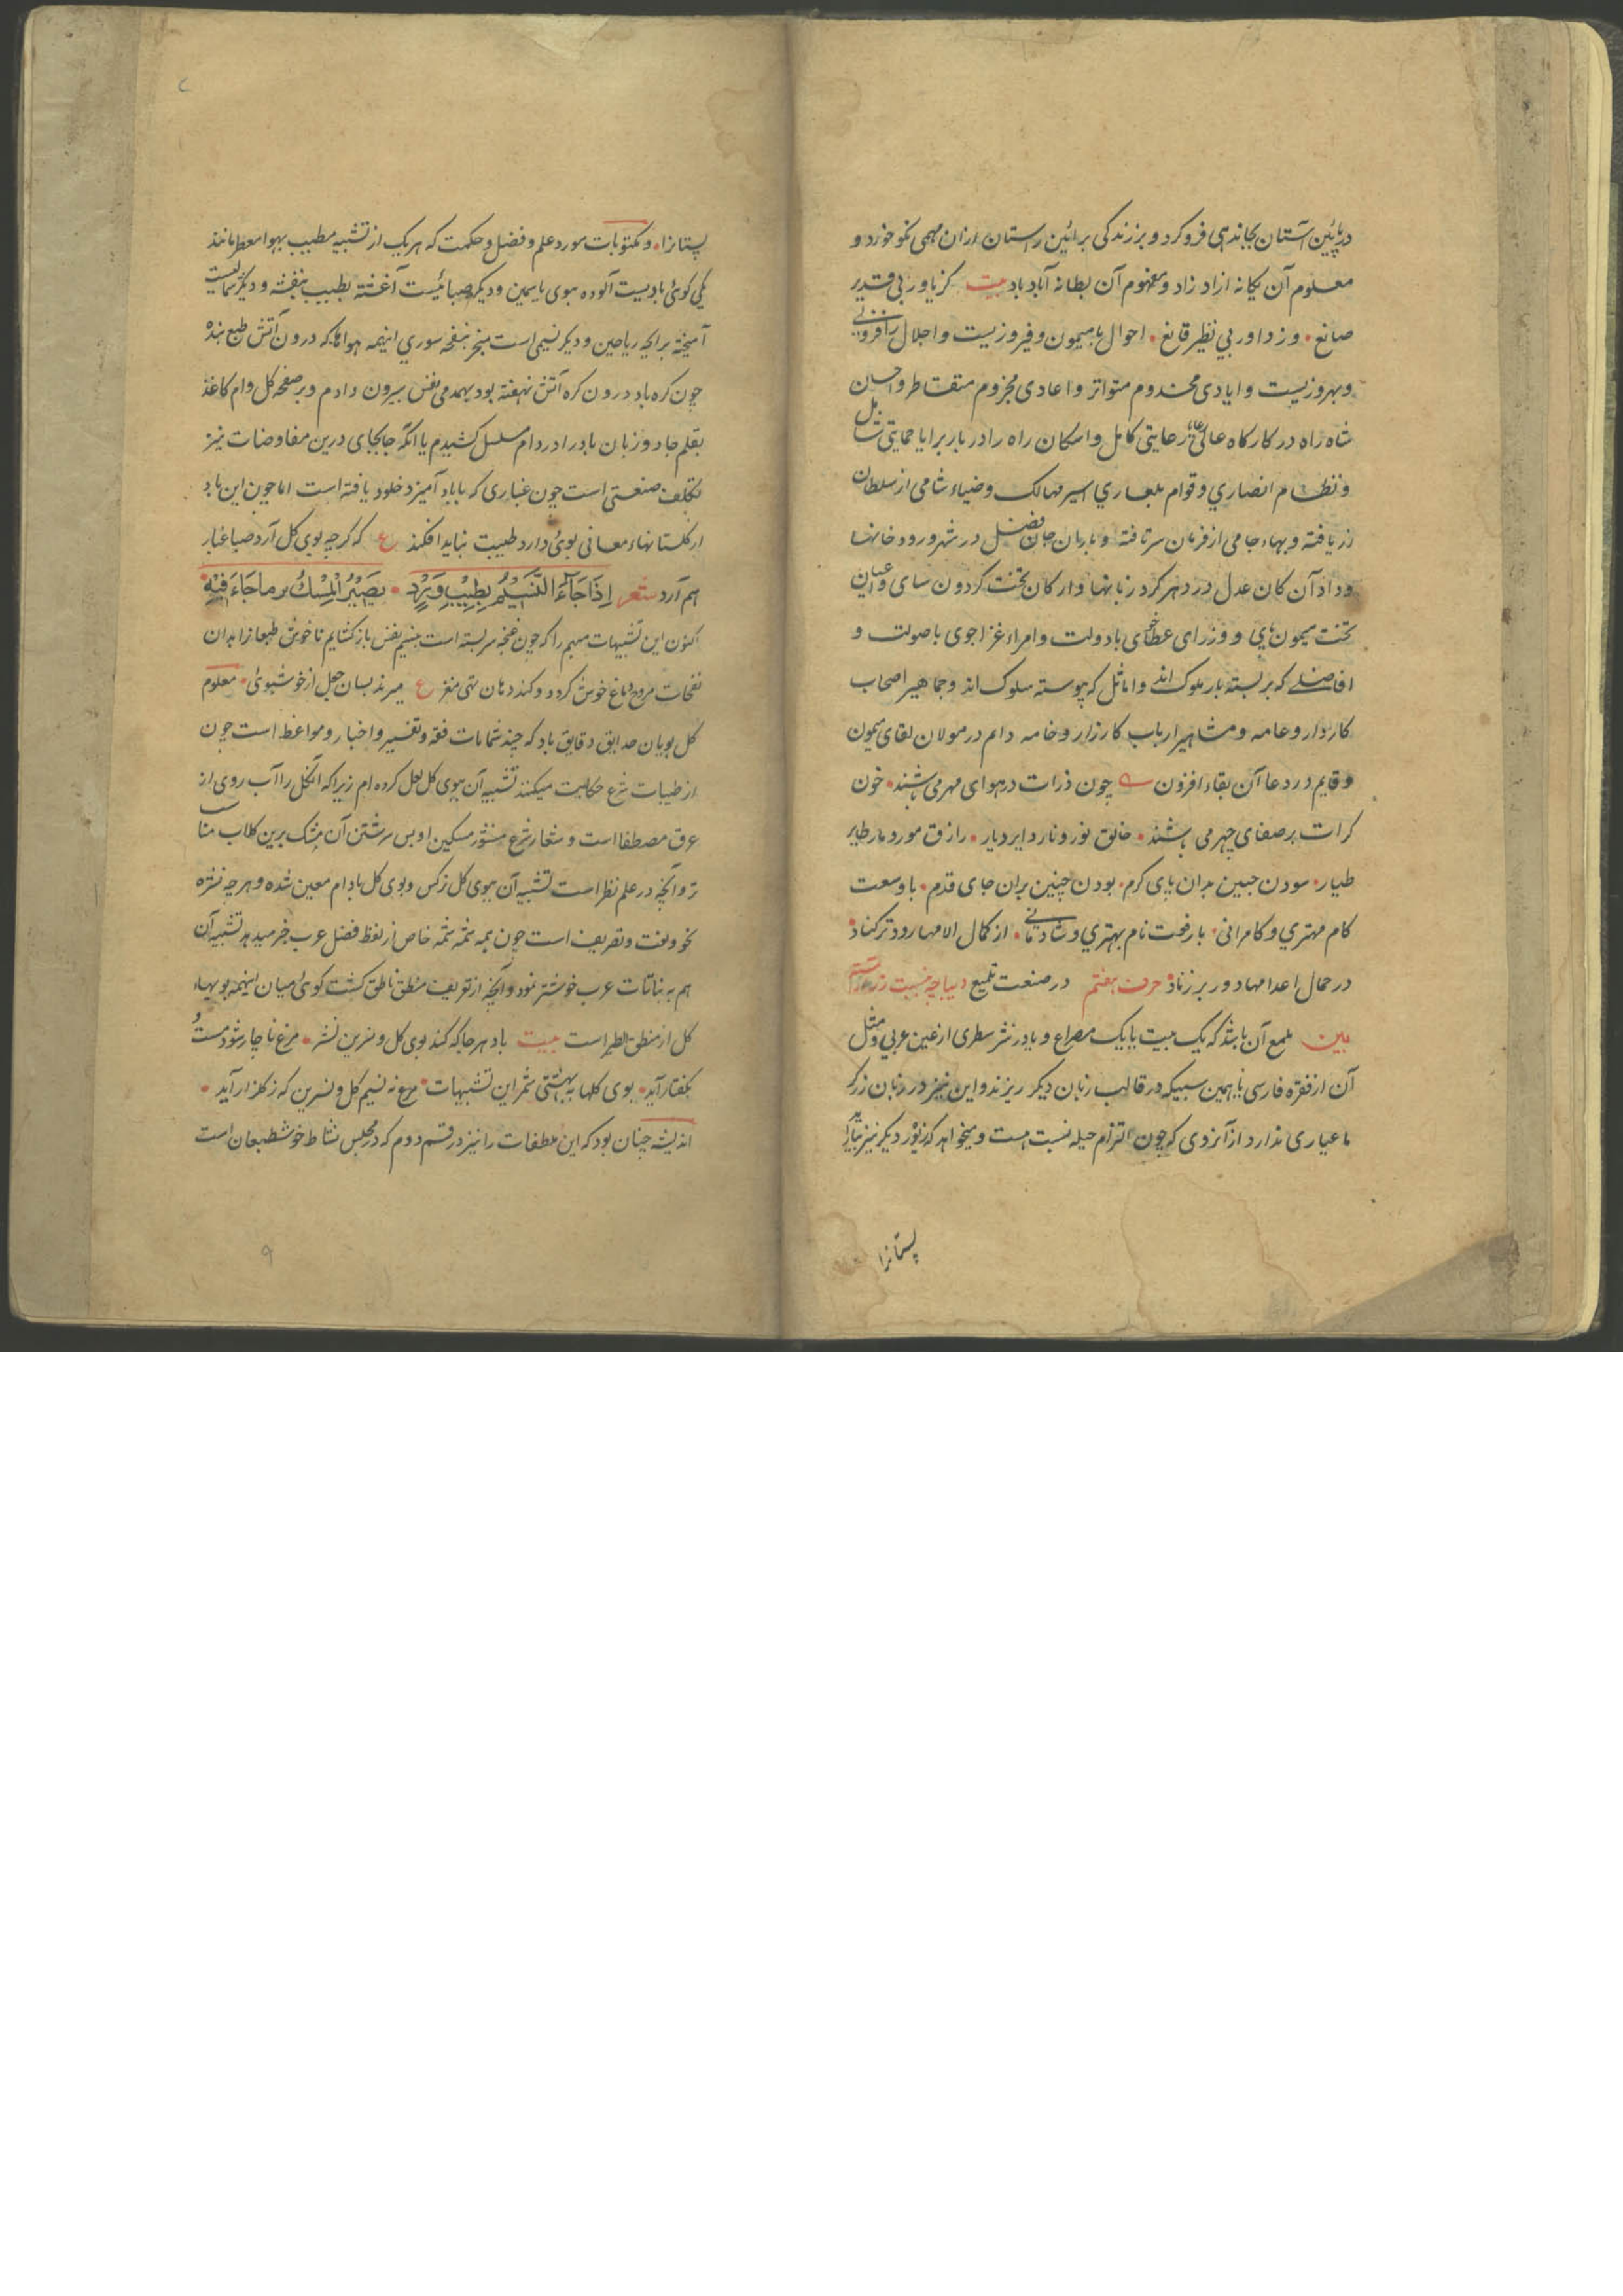 در پائین آستان بجاند هی فرو کرد و بر زندگی برائین راستان ازان مهمی انکو خورد و
معلوم آن یکانه ازاد زاد و مفهوم آن بطانه آباد باد بیت کز یاور بی قدیر
صانع • وز داور بی نظیر قانع • احوال با میمون و فیروزیست و اجلال را فزونی
و بهروزیست و ایادی مخدوم متواتر و اعادی مجزوم متقاطر و احسان
شاه راه در کارکاه عالی رعایتی کامل و اسکان راه را در بار برایا حمایتی شامل
و نظام انصاری و قوام بلغاری اسیر مهالک و ضیاء شامی از سلطان
زر یافته و بهاء جامی از فرمان سر تافته و بابدان جان فضل در شهر و رود خانها
و داد آن کان عدل در دهر کرد زبانها و ارکان تخت کردون سای و اعیان
تخت میمون پی و وزرای عطا بادولت و امراء غزا جوی با صولت و
افاضلی که بر بسته بار ملوک اند و اماثل که پیوسته سلوک اند و جماهیر اصحاب
کاردار و عامه و مشاهیر ارباب کارزار و خامه دایم در مولان لقای میمون
و قایم در دعا آن بقاء افزون چون ذرات در هوای مهر می باشند • خون
کرات بر صفای چهر می باشند • خالق نور و نار د ایر دیار • رازق مور د مار طایر
طیار • سودن جبین بدان پای کرم • بودن چنین بران جای قدم • با وسعت
کام مهتری و کامرانی • بارفعت نام بهتری و شادمانی • از کمال الامها رود ترکناد •
در حمال اعدامها دور بر زناد • حرف هفتم در صنعت تلمیع دیباچه
بین ملمع آن باشد که یک بیت یا یک مصراع و یا در نثر سطری از عین عربی و مثل
آن از فقره فارسی یا همین سبیکه در قالب زبان دیکر ریزند و این نیز در زبان زرکر
ما عیاری ندارد از آنروی که چون التزام حیله نسبت هست و میخواهد که زیور دیکر نیز بیاید
پستانرا
پستانرا • و مکتوبات مورد علم و فضل و حکمت که هر یک از تشبیه مطیب بهوا معطر مانند
یکی کوئی بادیست آلوده ببوی یاسمین و دیکر صبائیست آغشته بطیب بنفشه و دیکر شمالیست
آمیخته برایحه ریاحین و دیکر نسیمی است متبخر بنفحه سوری اینهمه هواها که درون آتش طبع بنده
چون کره باد درون کره آتش نهفته بود بهمدمی نفس بیرون دادم و بر صفحه کل وام کاغذ
بقلم جادو زبان باد را در دام مسلسل کشیدم با آنکه جابجای درین مفاوضات نیز
تکلف صنعتی است چون غباری که باباد آمیزد خلود یافته است اما چون این باد
از کلستانهاء معانی بوئی دارد طبیت بباید افکند ع که کرچه بوی کل آرد صبا غبار
هم آرد شعر اِذَا جَآءَ النَّسِیْمُ بِطِیْبِ وَرْدٍ • یَصِیْرُ الْمِسْكُ بر ماجَآءَ فِیْهِ
اکنون این تشبیهات مبهم را که چون غنچه سر بسته است بنسیم نفس باز کشایم تا خوش طبعانرا بدان
نفحات مروح دماغ خوش کردد و کنددهان تهی مغز ع میرند بسان جعل از خوشبوئی • معلوم
کل بویان حدایق دقایق باد که چند شمامات فقه و تفسیر و اخبار و مواعظ است چون
از طیبات شرع حکایت میکنند تشبیه آن ببوی کل لعل کرده ام زیرا که آن کل را آب روی از
عرق مصطفا است و شعار شرع منثور مسکین او پس سرشتن آن مشک برین کلاب مناسب
تر و آنچه در علم نظر است تشبیه آن ببوی کل نرکس و بوی کل بادام معین شده و هر چه نشره
نحو و لغت و تصریف است چون همه شمه شمه خاص از لفظ فضل عرب خبر میدهد تشبیه آن
هم به نباتات عرب خوشتر نمود و آنچه از تعریف منطق ناطق کشت کوئی میان اینهمه بویهاء
کل از منطق الطیر است بیت باد هر جا که کند بوی کل و نسرین نشر • مرغ ناچار شود مست و
بکفتار آید • بوی کلها به بهشتی شمر این تشبیهات • مرغ نه نسیم کل و نسرین که ز کلزار آید •
اندیشه چنان بود که این ملطفات را نیز در قسم دوم که در مجلس نشاط خوش طبعان است